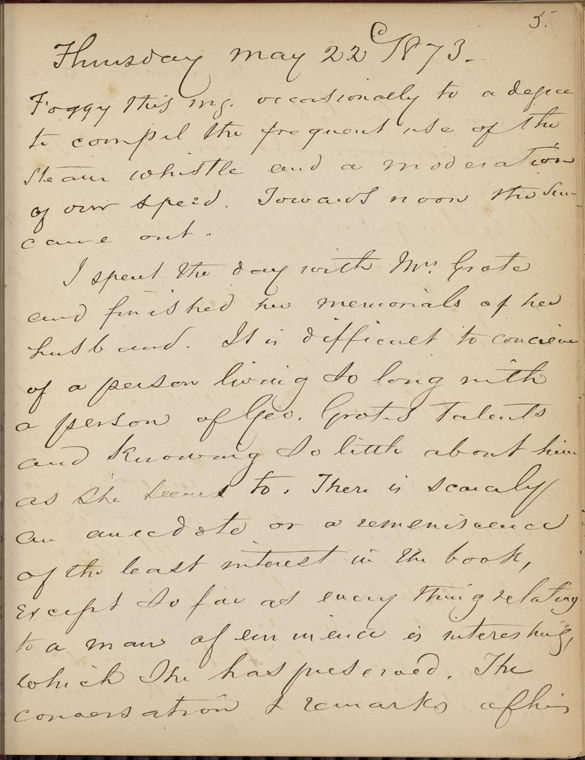 5.
Thursday May 22 1873.
Foggy this mg. occasionally to a degree
to compel the frequent use of the
steam whistle and a moderation
of our speed. Towards noon the sun
came out.
I spent the day with Mrs. Grote
and finished her memorials of her
husband. It is difficult to conceive
of a person living so long with
a person of Geo. Grotes talents
and knowing so little about him
as she seems to. There is scarcely
an anecdote or a remeniscence
of the least interest in the book,
except so far as every thing relating
to a man of eminence is interesting,
which she has preserved. The
conversation & remarks of his